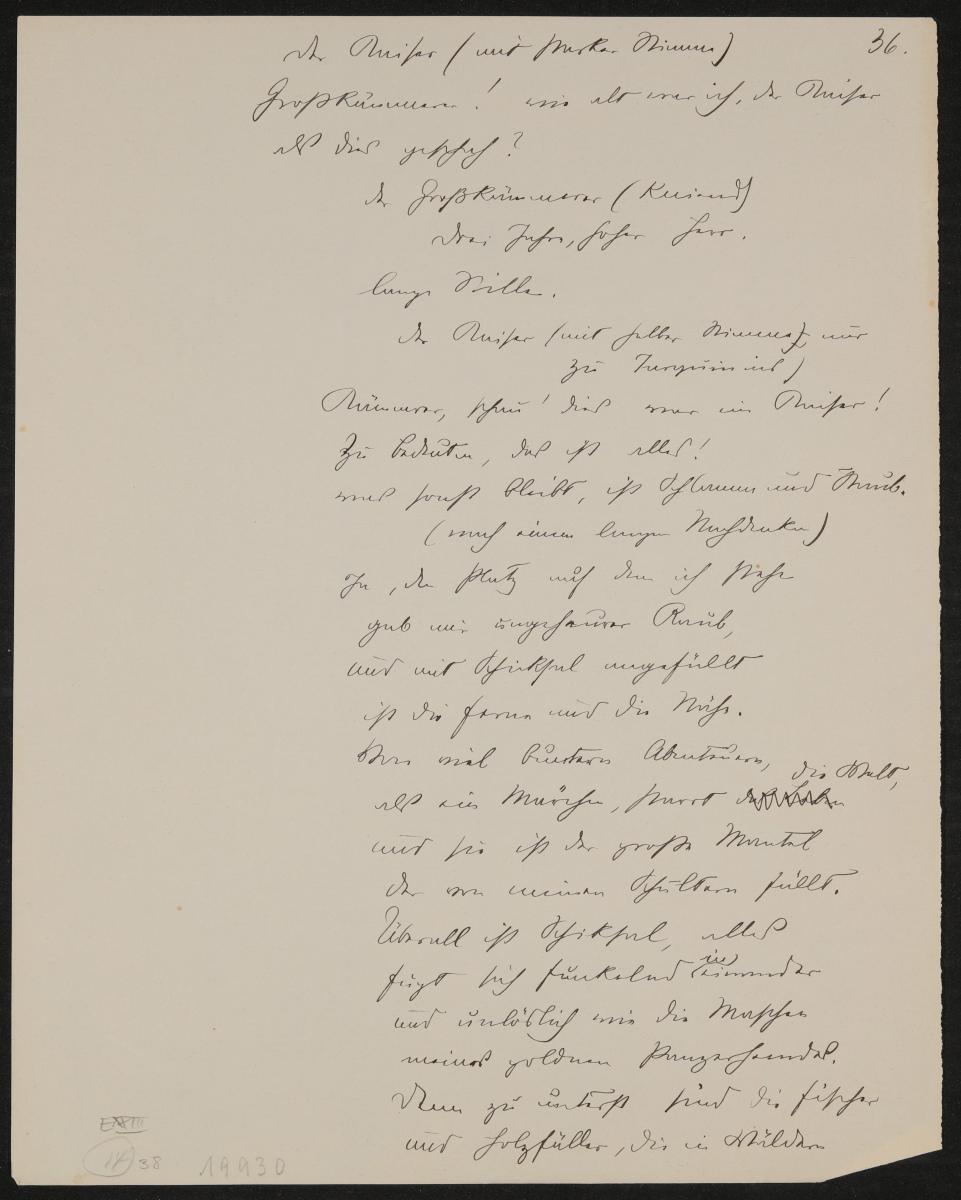 36.
der Kaiser (mit starker Stimme)
Großkämmerer! wie alt war ich, der Kaiser
als dies geschah?
der Großkämmerer (kniend)
Drei Jahre, hoher Herr.
lange Stille.
der Kaiser (mit halber Stimme, nur
zu Tarquinius)
Kämmerer, schau! dies war ein Kaiser!
Zu bedeuten, das ist alles!
was sonst bleibt, ist Schlamm und Staub.
(nach einem langen Nachdenken)
Ja, den Platz auf dem ich stehe
gab mir ungeheurer Raub,
und mit Schicksal angefüllt
ist die Ferne und die Nähe.
Von viel buntern Abenteuern, die Welt,
als ein Märchen, starrt
und sie ist der große Mantel
der von meinen Schultern fällt.
Überall ist Schiksal, alles
fügt sich funkelnd ineinander
und unlöslich wie die Maschen
meines goldnen Panzerhemdes.
Denn zu unterst sind die Fischer
und Holzfäller, die in Wäldern
38
19930